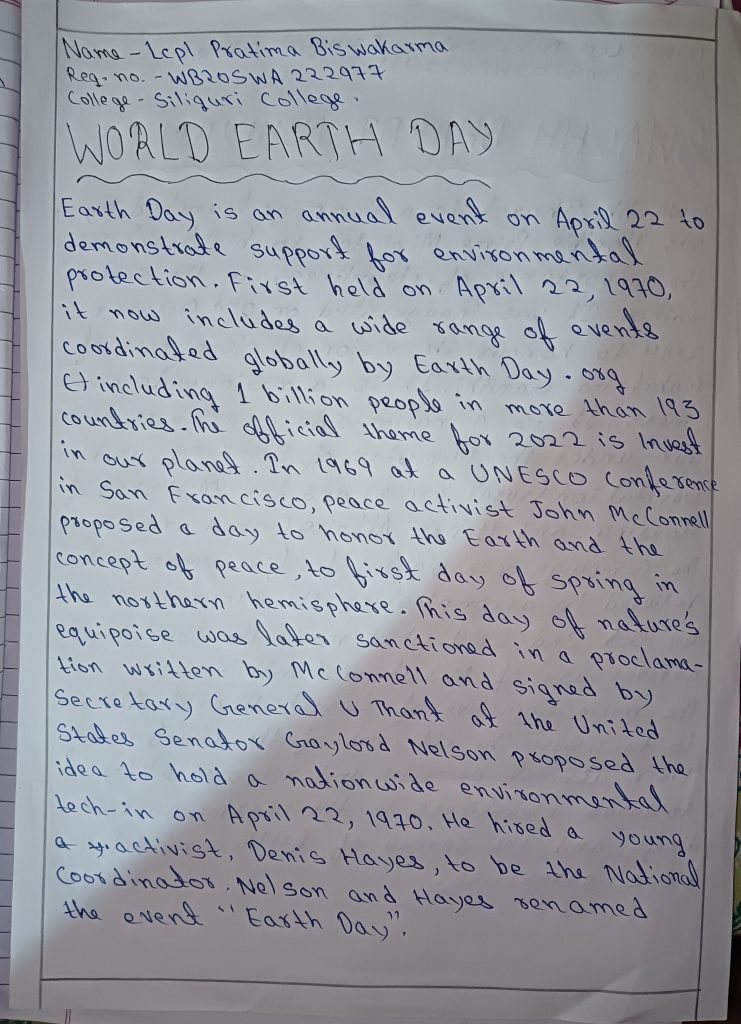 Name - Lcpl Pratima Biswakarma
Reg. no. - WB20SWA 222977
College - Siliguri College.
WORLD EARTH DAY
Earth Day is an annual event on April 22 to
demonstrate support for environmental
protection. First held on April 22, 1970,
it now includes a wide range of events
coordinated globally by Earth Day.org
including 1 billion people in more than 193
countries. The official theme for 2022 is Invest
in our planet. In 1969 at a UNESCO Conference
in San Francisco, peace activist John McConnell
proposed a day to honor the Earth and the
concept of peace, to first day of spring in
the northern hemisphere. This day of nature's
equipoise was later sanctioned in a proclama-
tion written by McConnell and signed by
Secretary General U Thant at the United
States Senator Gaylord Nelson proposed the
idea to hold a nationwide environmental
tech-in on April 22, 1970. He hired a young
activist, Denis Hayes, to be the National
Coordinator. Nelson and Hayes renamed
the event "Earth Day".